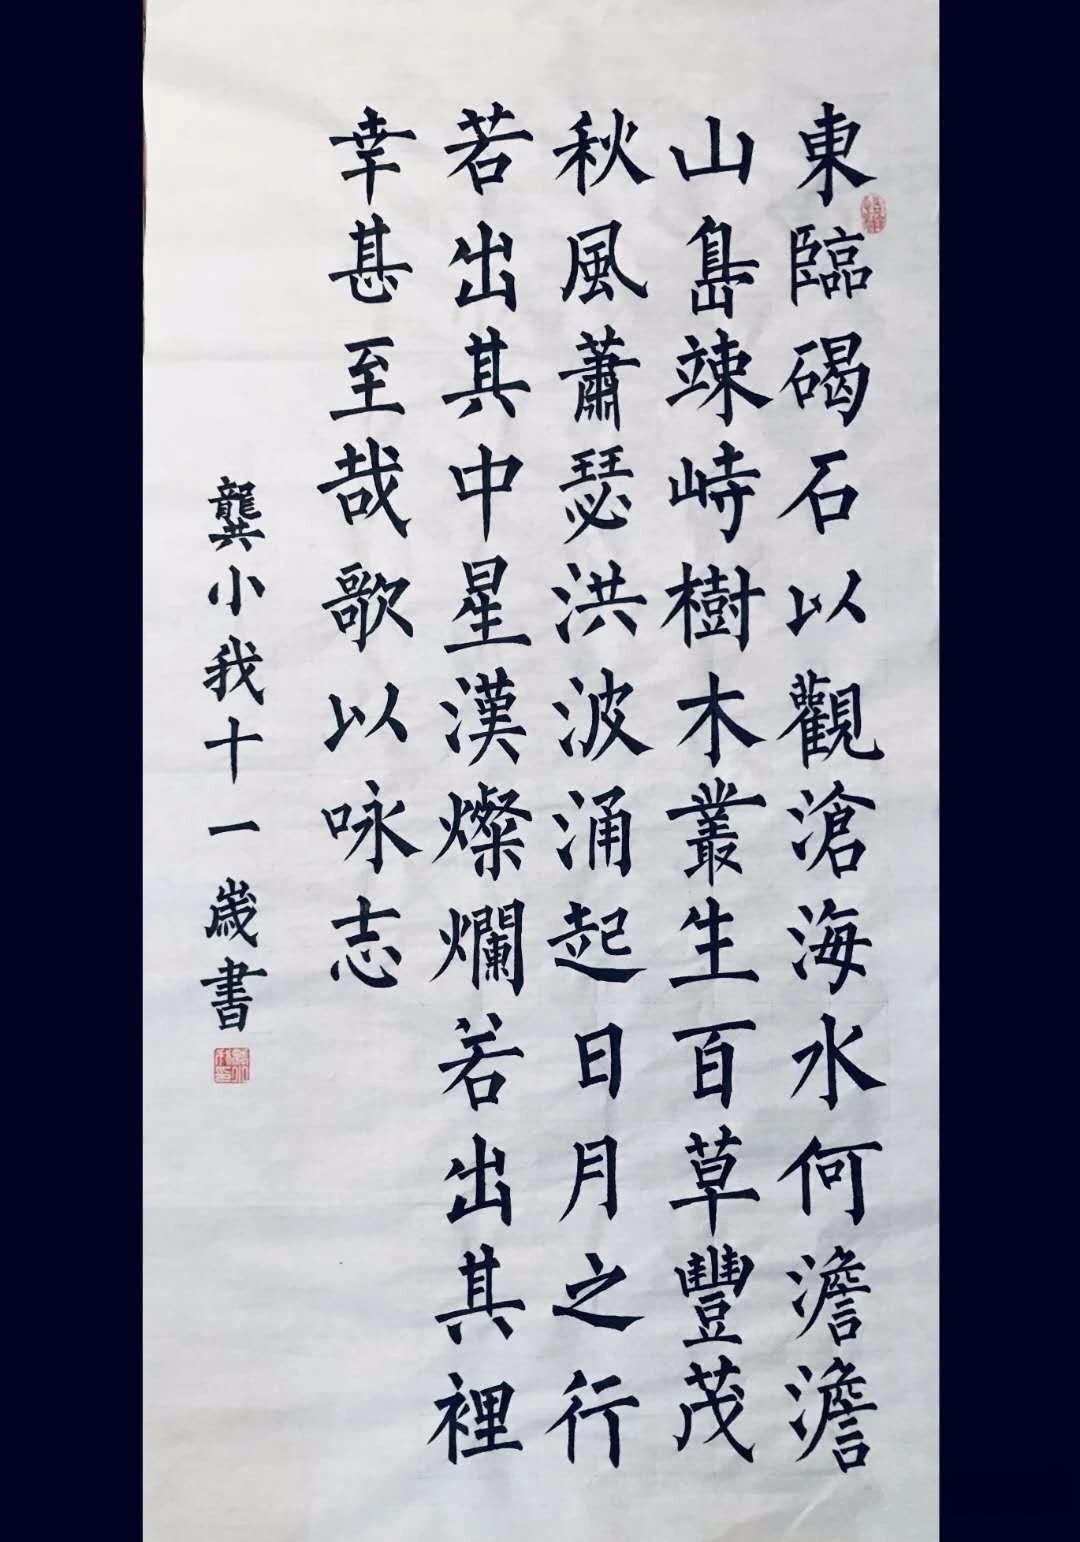 東臨碣石以觀滄海水何澹澹
山島竦峙樹木叢生百草豐茂
秋風蕭瑟洪波涌起日月之行
若出其中星漢燦爛若出其裡
幸甚至哉歌以咏志
龔小我十一歲書